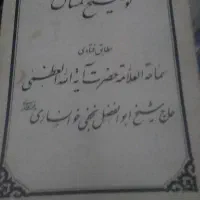 توضیح المسائل
مطابق فتاوی
سماحة العلامة حضرت آیة الله العظمی
حاج شیخ ابوالفضل نجفی خوانساری